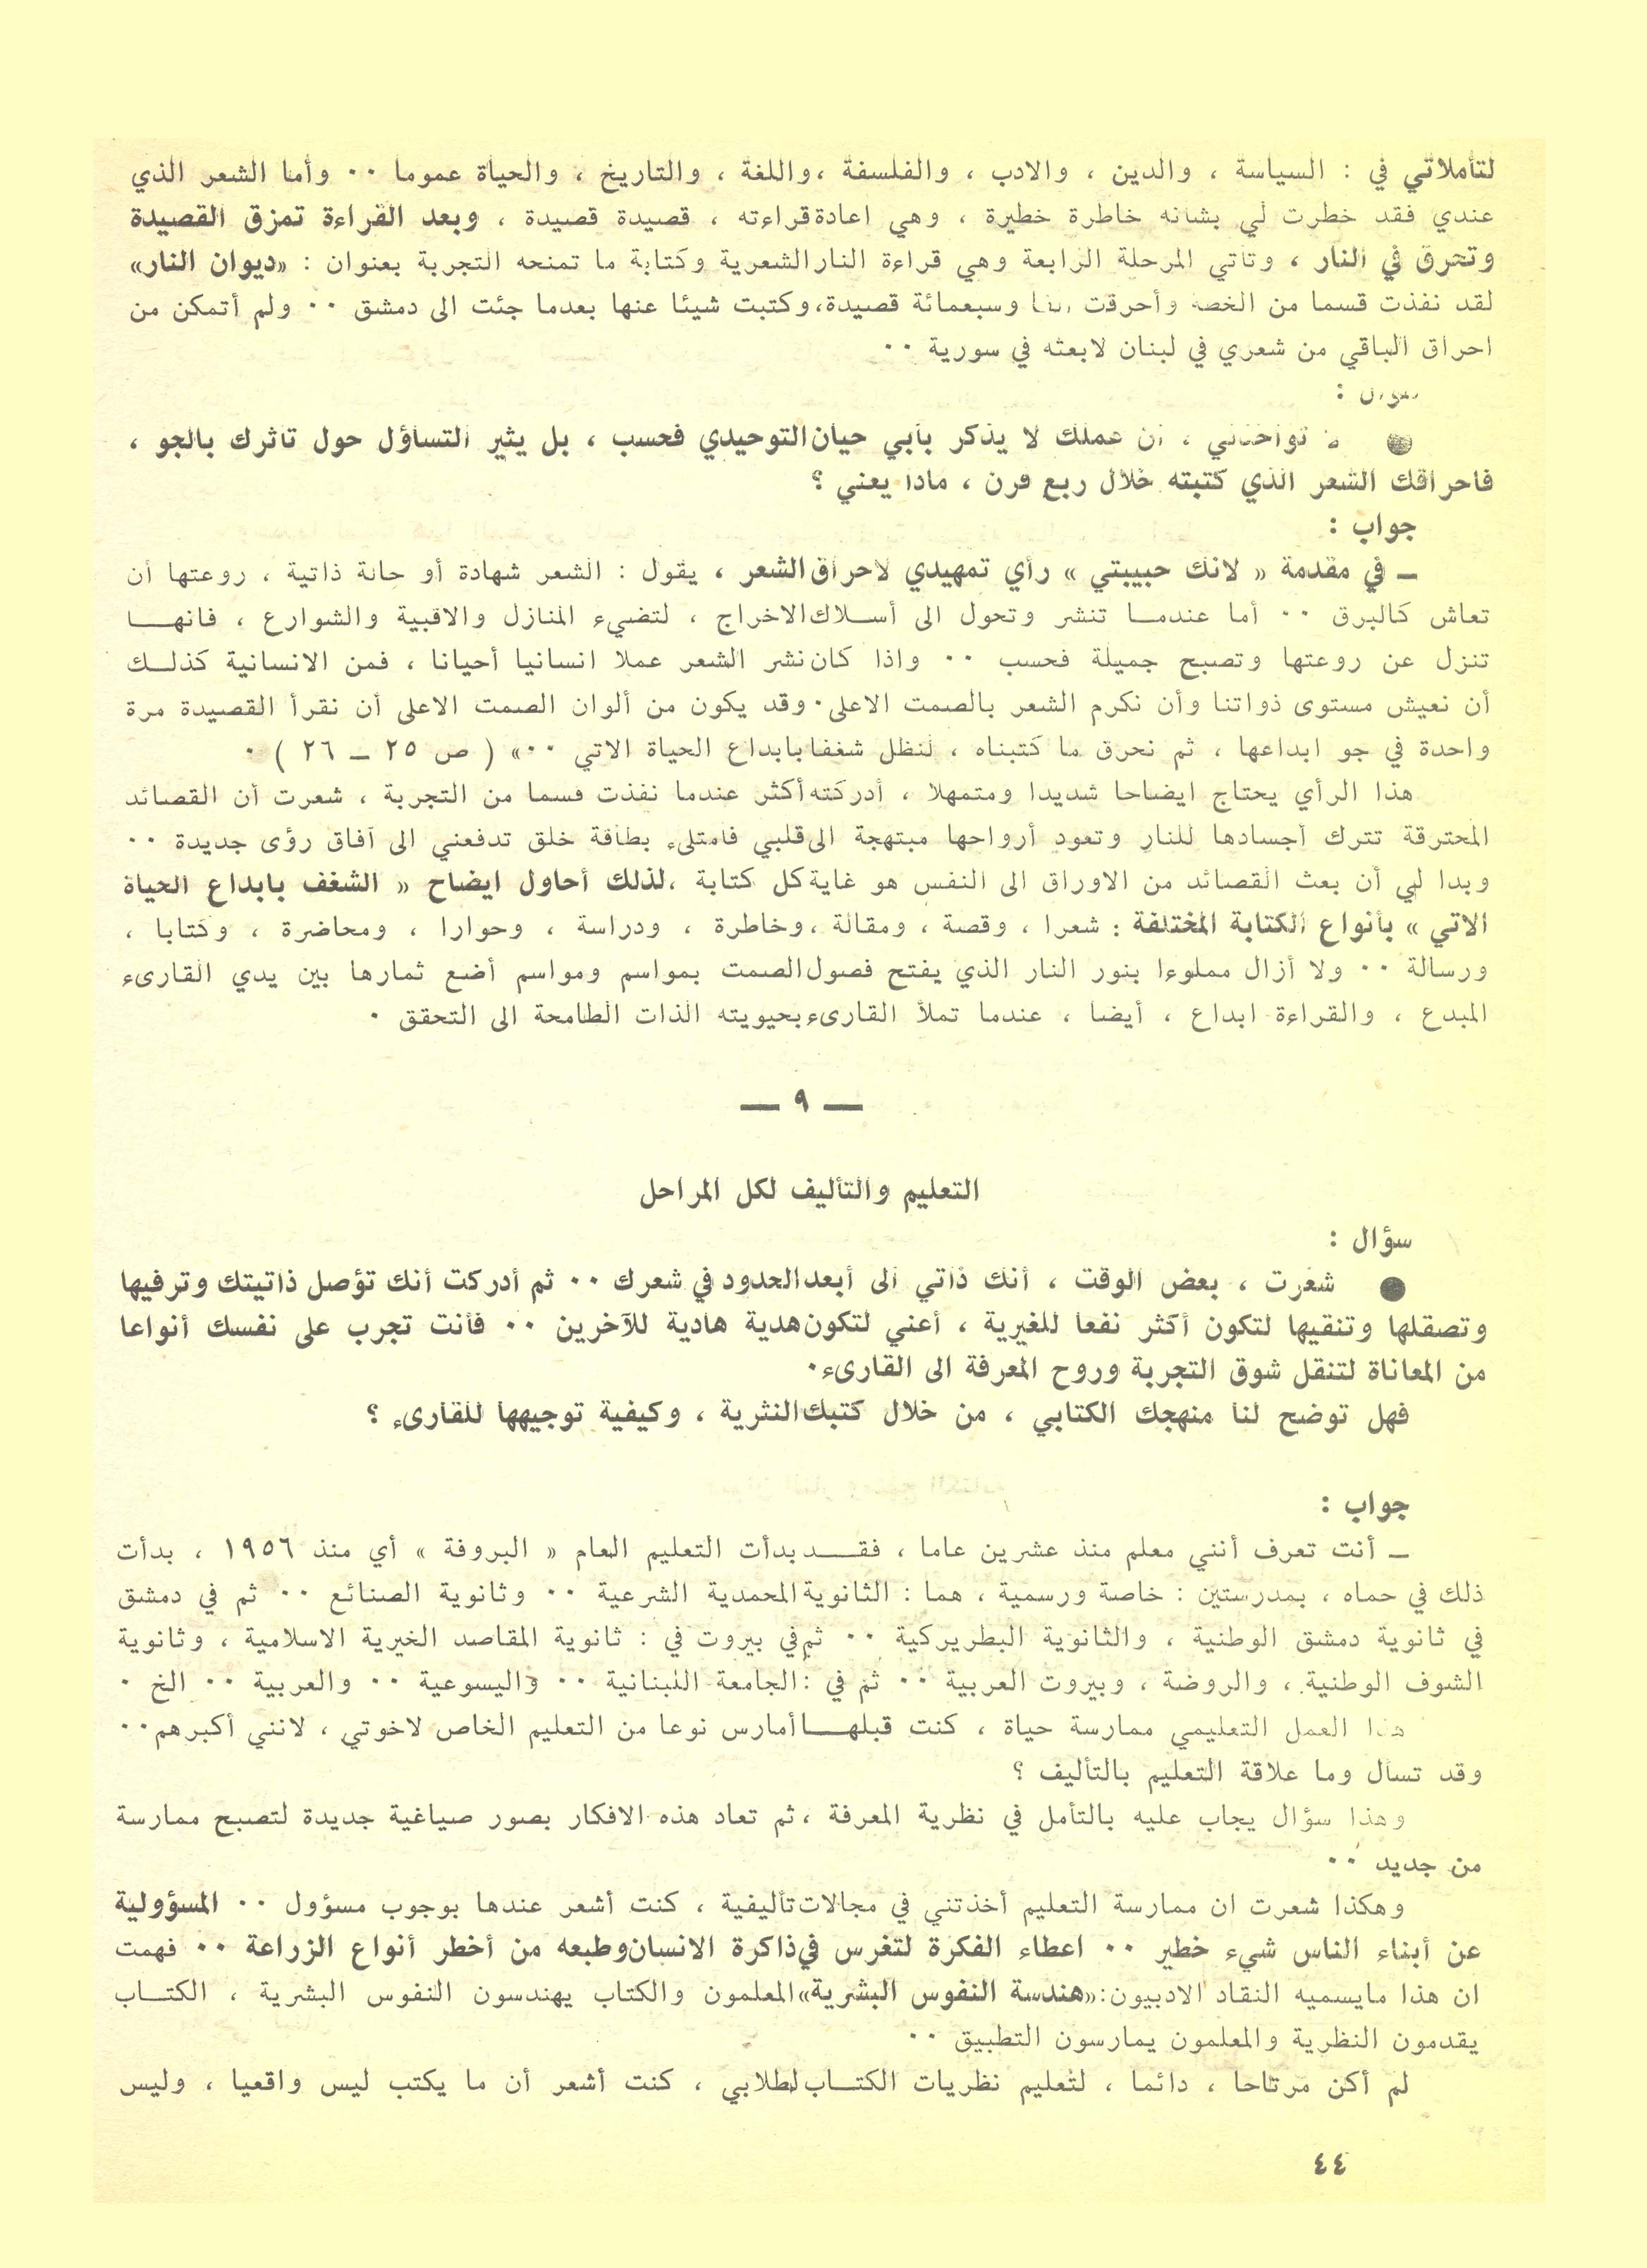 لتأملاتي في : السياسة ، والدين ، والادب ، والفلسفة ،واللغة ، والتاريخ ، والحياة عموما ٠٠ وأما الشعر الذي
عندي فقد خطرت لي بشانه خاطرة خطيرة ، وهي اعادة قراءته ، قصيدة قصيدة ، وبعد القراءة تمزق القصيدة
وتحرق في النار ، وتاتي المرحلة الرابعة وهي قراءة النار الشعرية وكتابة ما تمنحه التجربة بعنوان : «ديوان النار»
لقد نفذت قسما من الخطة وأحرقت الفا وسبعمائة قصيدة، وكتبت شيئا عنها بعدما جئت الى دمشق ٠٠ ولم أتمكن من
احراق الباقي من شعري في لبنان لابعثه في سورية ٠٠
سؤال :
● لا تؤاخذني ، ان عملك لا يذكر بأبي حيان التوحيدي فحسب ، بل يثير التساؤل حول تاثرك بالجو ،
فاحراقك الشعر الذي كتبته خلال ربع قرن ، ماذا يعني ؟
جواب :
ــ في مقدمة « لانك حبيبتي » رأي تمهيدي لاحراق الشعر ، يقول : الشعر شهادة أو حالة ذاتية ، روعتها أن
تعاش كالبرق ٠٠ أما عندمــا تنشر وتحول الى أســلاك الاخراج ، لتضيء المنازل والاقبية والشوارع ، فانهــا
تنزل عن روعتها وتصبح جميلة فحسب ٠٠ واذا كان نشر الشعر عملا انسانيا أحيانا ، فمن الانسانية كذلــك
أن نعيش مستوى ذواتنا وأن نكرم الشعر بالصمت الاعلى٠ وقد يكون من ألوان الصمت الاعلى أن نقرأ القصيدة مرة
واحدة في جو ابداعها ، ثم نحرق ما كتبناه ، لنظل شغفا بابداع الحياة الاتي ٠٠» ( ص ٢٥ ــ ٢٦ ) ٠
هذا الرأي يحتاج ايضاحا شديدا ومتمهلا ، أدركته أكثر عندما نفذت قسما من التجربة ، شعرت أن القصائد
المحترقة تترك أجسادها للنار وتعود أرواحها مبتهجة الى قلبي فامتلىء بطاقة خلق تدفعني الى آفاق رؤى جديدة ٠٠
وبدا لي أن بعث القصائد من الاوراق الى النفس هو غاية كل كتابة ،لذلك أحاول ايضاح « الشغف بابداع الحياة
الاتي » بأنواع الكتابة المختلفة : شعرا ، وقصة ، ومقالة ،وخاطرة ، ودراسة ، وحوارا ، ومحاضرة ، وكتابا ،
ورسالة ٠٠ ولا أزال مملوءا بنور النار الذي يفتح فصول الصمت بمواسم ومواسم أضع ثمارها بين يدي القارىء
المبدع ، والقراءة ابداع ، أيضا ، عندما تملأ القارىء بحيويته الذات الطامحة الى التحقق ٠
ــ ٩ ــ
التعليم والتأليف لكل المراحل
سؤال :
● شعرت ، بعض الوقت ، أنك ذاتي الى أبعد الحدود في شعرك ٠٠ ثم أدركت أنك تؤصل ذاتيتك وترفيها
وتصقلها وتنقيها لتكون أكثر نفعا للغيرية ، أعني لتكون هدية هادية للآخرين ٠٠ فأنت تجرب على نفسك أنواعا
من المعاناة لتنقل شوق التجربة وروح المعرفة الى القارىء٠
فهل توضح لنا منهجك الكتابي ، من خلال كتبك النثرية ، وكيفية توجيهها للقارىء ؟
جواب :
ــ أنت تعرف أنني معلم منذ عشرين عاما ، فقــد بدأت التعليم العام « البروفة » أي منذ ١٩٥٦ ، بدأت
ذلك في حماه ، بمدرستين : خاصة ورسمية ، هما : الثانوية المحمدية الشرعية ٠٠ وثانوية الصنائع ٠٠ ثم في دمشق
في ثانوية دمشق الوطنية ، والثانوية البطريركية ٠٠ ثم في بيروت في : ثانوية المقاصد الخيرية الاسلامية ، وثانوية
الشوف الوطنية ، والروضة ، وبيروت العربية ٠٠ ثم في : الجامعة اللبنانية ٠٠ واليسوعية ٠٠ والعربية ٠٠ الخ ٠
هذا العمل التعليمي ممارسة حياة ، كنت قبلهــا أمارس نوعا من التعليم الخاص لاخوتي ، لانني أكبرهم٠٠
وقد تسأل وما علاقة التعليم بالتأليف ؟
وهذا سؤال يجاب عليه بالتأمل في نظرية المعرفة ،ثم تعاد هذه الافكار بصور صياغية جديدة لتصبح ممارسة
من جديد ٠٠
وهكذا شعرت ان ممارسة التعليم أخذتني في مجالات تأليفية ، كنت أشعر عندها بوجوب مسؤول ٠٠ المسؤولية
عن أبناء الناس شيء خطير ٠٠ اعطاء الفكرة لتغرس في ذاكرة الانسان وطبعه من أخطر أنواع الزراعة ٠٠ فهمت
ان هذا مايسميه النقاد الادبيون:«هندسة النفوس البشرية»المعلمون والكتاب يهندسون النفوس البشرية ، الكتــاب
يقدمون النظرية والمعلمون يمارسون التطبيق ٠٠
لم أكن مرتاحا ، دائما ، لتعليم نظريات الكتــاب لطلابي ، كنت أشعر أن ما يكتب ليس واقعيا ، وليس
٤٤